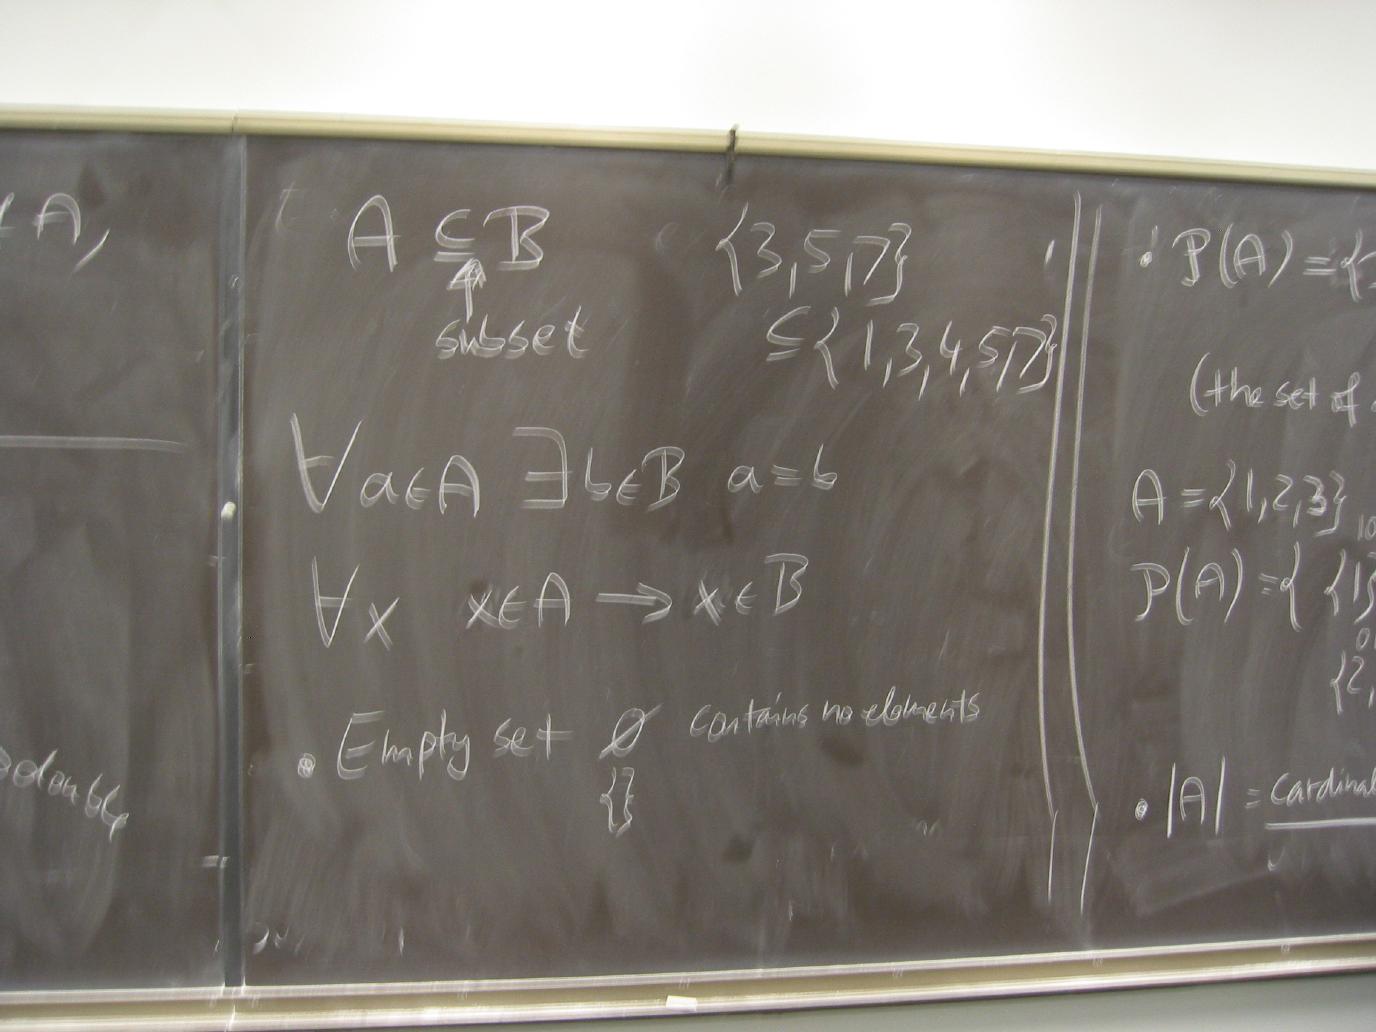 A,
A ⊆ B
subset
{3,5,7}
⊆{1,3,4,5,7}
∀a∈A ∃b∈B a=b
∀x x∈A → x∈B
• Empty set ∅ contains no elements
{}
• P(A) = {
(the set of
A = {1,2,3}
P(A) = { {1}
{2,
• |A| = cardinal